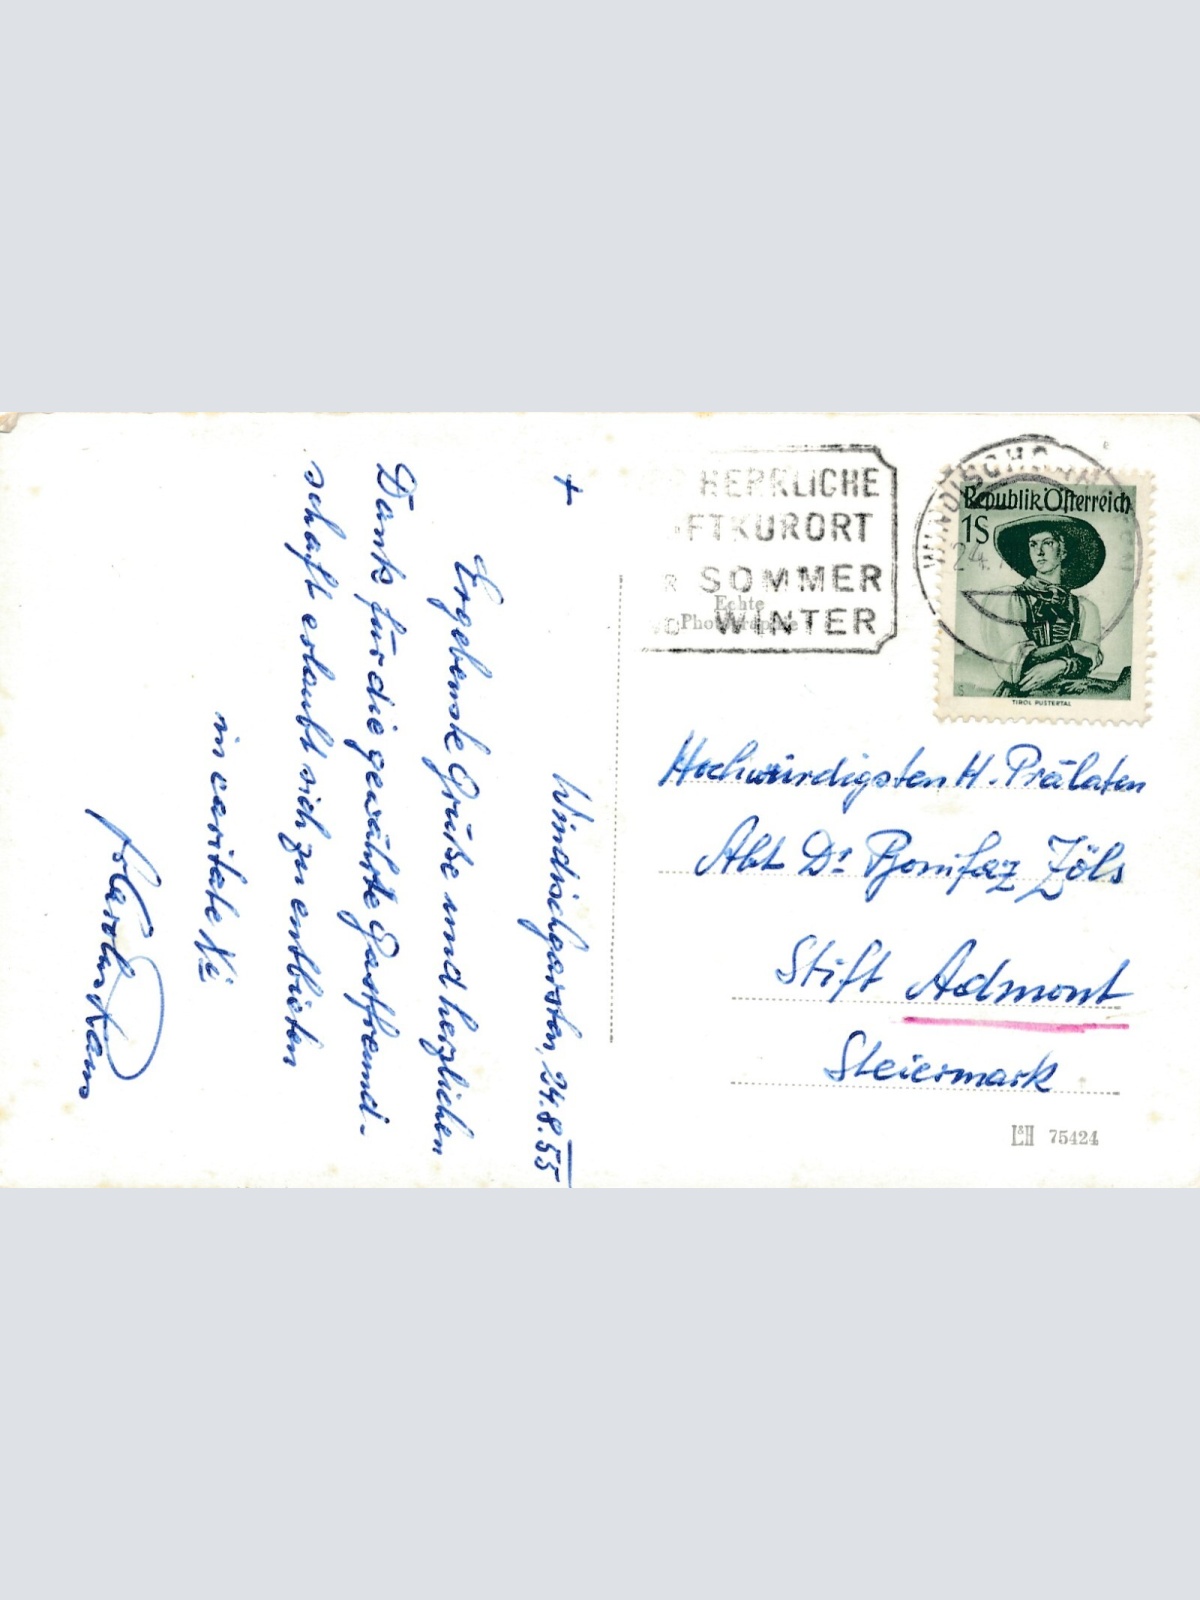 +
Windischgarsten, 24.8.55
Ergebenste Grüße und herzlichen
Dank für die gewährte Gastfreund-
schaft erlaubt sich zu entbieten
in caritate Xi
HERRLICHE
FTKURORT
SOMMER
WINTER
Echte
Photographie
24.
Republik Österreich
1S
TIROL PUSTERTAL
Hochwürdigsten H. Prälaten
Abt Dr Bonifaz Zöls
Stift Admont
Steiermark
L&H 75424